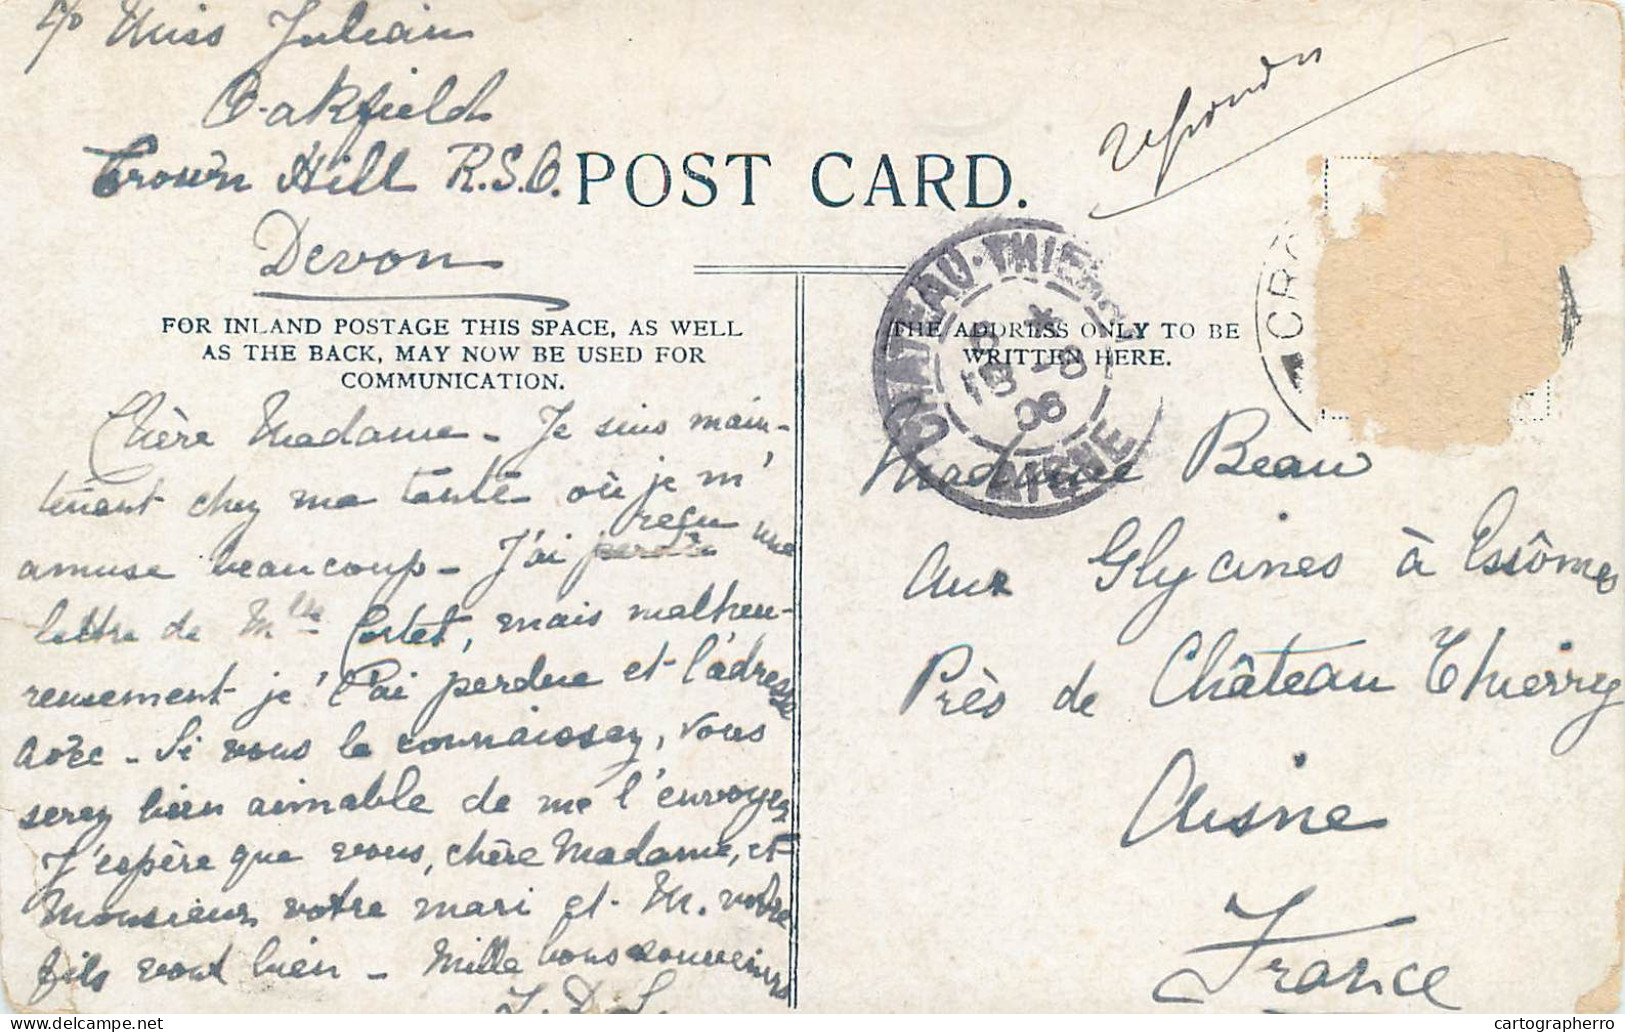 c/o Miss Julian
Oakfield
Crown Hill R.S.O.
Devon
POST CARD.
répondu
FOR INLAND POSTAGE THIS SPACE, AS WELL
AS THE BACK, MAY NOW BE USED FOR
COMMUNICATION.
THE ADDRESS ONLY TO BE
WRITTEN HERE.
CHATEAU-THIERR
AISNE
08
CR
Chère Madame - Je suis main-
tenant chez ma tante où je m'
amuse beaucoup - J'ai perdu reçu une
lettre de Mlle Cortet, mais malheu-
reusement je l'ai perdue et l'adresse
avec - Si vous la connaissez, vous
serez bien aimable de me l'envoyez
J'espère que vous, chère Madame, et
Monsieur votre mari et M. votre
fils vont bien - Mille bons souvenirs
J. D. J.
Madame Beau
Aux Glycines à Essômes
Près de Château Thierry
Aisne
France
cartographerro